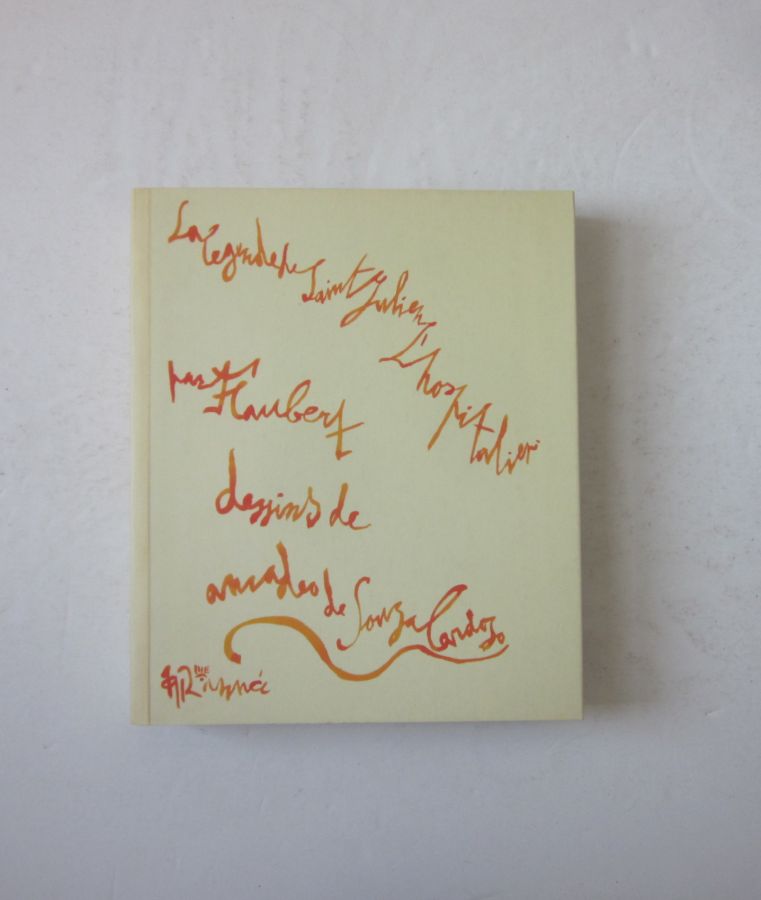 La légende de Saint Julien L'hospitalier
par Flaubert
dessins de
amadeo de Souza Cardozo